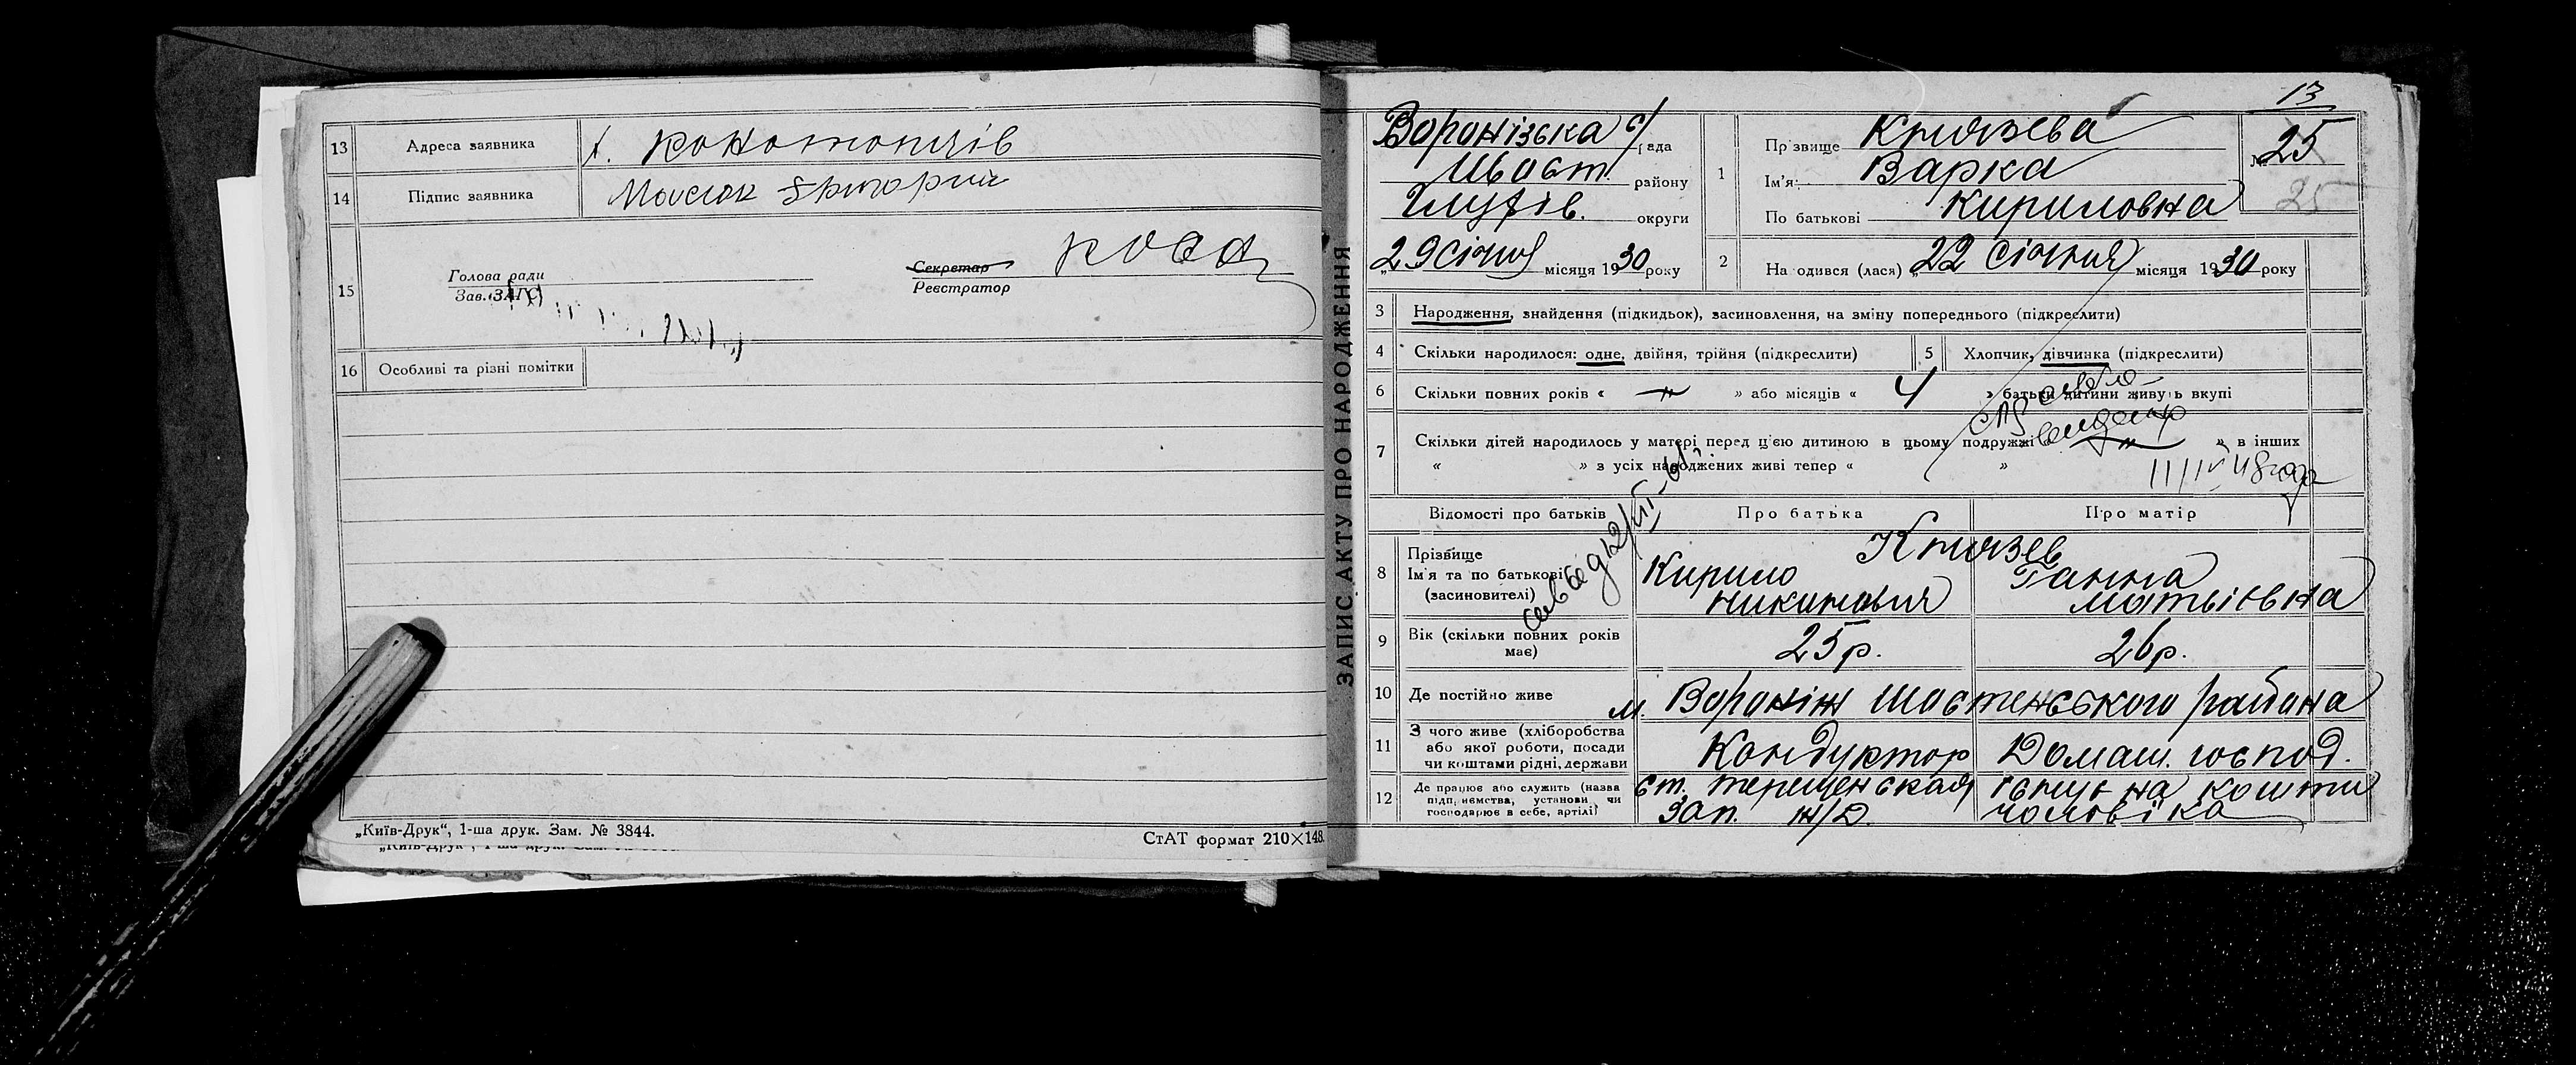 13 Адреса заявника х. Конотопчів
14 Підпис заявника Мовсюк Григорий
15 Голова ради
Зав. ЗАГС
Секретар Коса
Реєстратор
16 Особливі та різні помітки
„Київ-Друк“, 1-ша друк. Зам. № 3844.
СтАТ формат 210×148.
ЗАПИС АКТУ ПРО НАРОДЖЕННЯ
13
Воронізька с/рада
Шост. району
Глухів. округи
„29 січня місяця 1930 року
1 Прізвище Князева
Ім'я: Варка
По батькові Кириловна
№ 25
25
2 На одився (лася) „22 січня місяця 1930 року
3 Народження, знайдення (підкидьок), засиновлення, на зміну попереднього (підкреслити)
4 Скільки народилося: одне, двійня, трійня (підкреслити)
5 Хлопчик, дівчинка (підкреслити)
6 Скільки повних років « — » або місяців « 4 » батьки дитини живуть вкупі
7 Скільки дітей народилось у матері перед цією дитиною в цьому подружжі « — » в інших
« » з усіх народжених живі тепер « »
11/IV 48 года
Відомості про батьків
Про батька
Про матір
8 Прізвище
Ім'я та по батькові
(засновителі)
Князев
Кирило
Никитович
Ганна
Матьвіевна
9 Вік (скільки повних років має)
25 р.
26 р.
10 Де постійно живе м. Вороніж Шостенського района
11 З чого живе (хліборобства
або якої роботи, посади
чи коштами рідні, держави
Кондуктор
Домаш. господ.
12 Де працює або служить (назва
підприємства, установи чи
господарює в себе, артілі)
ст. Терещенская
Зап. Ж/Д.
на кошти
чоловіка